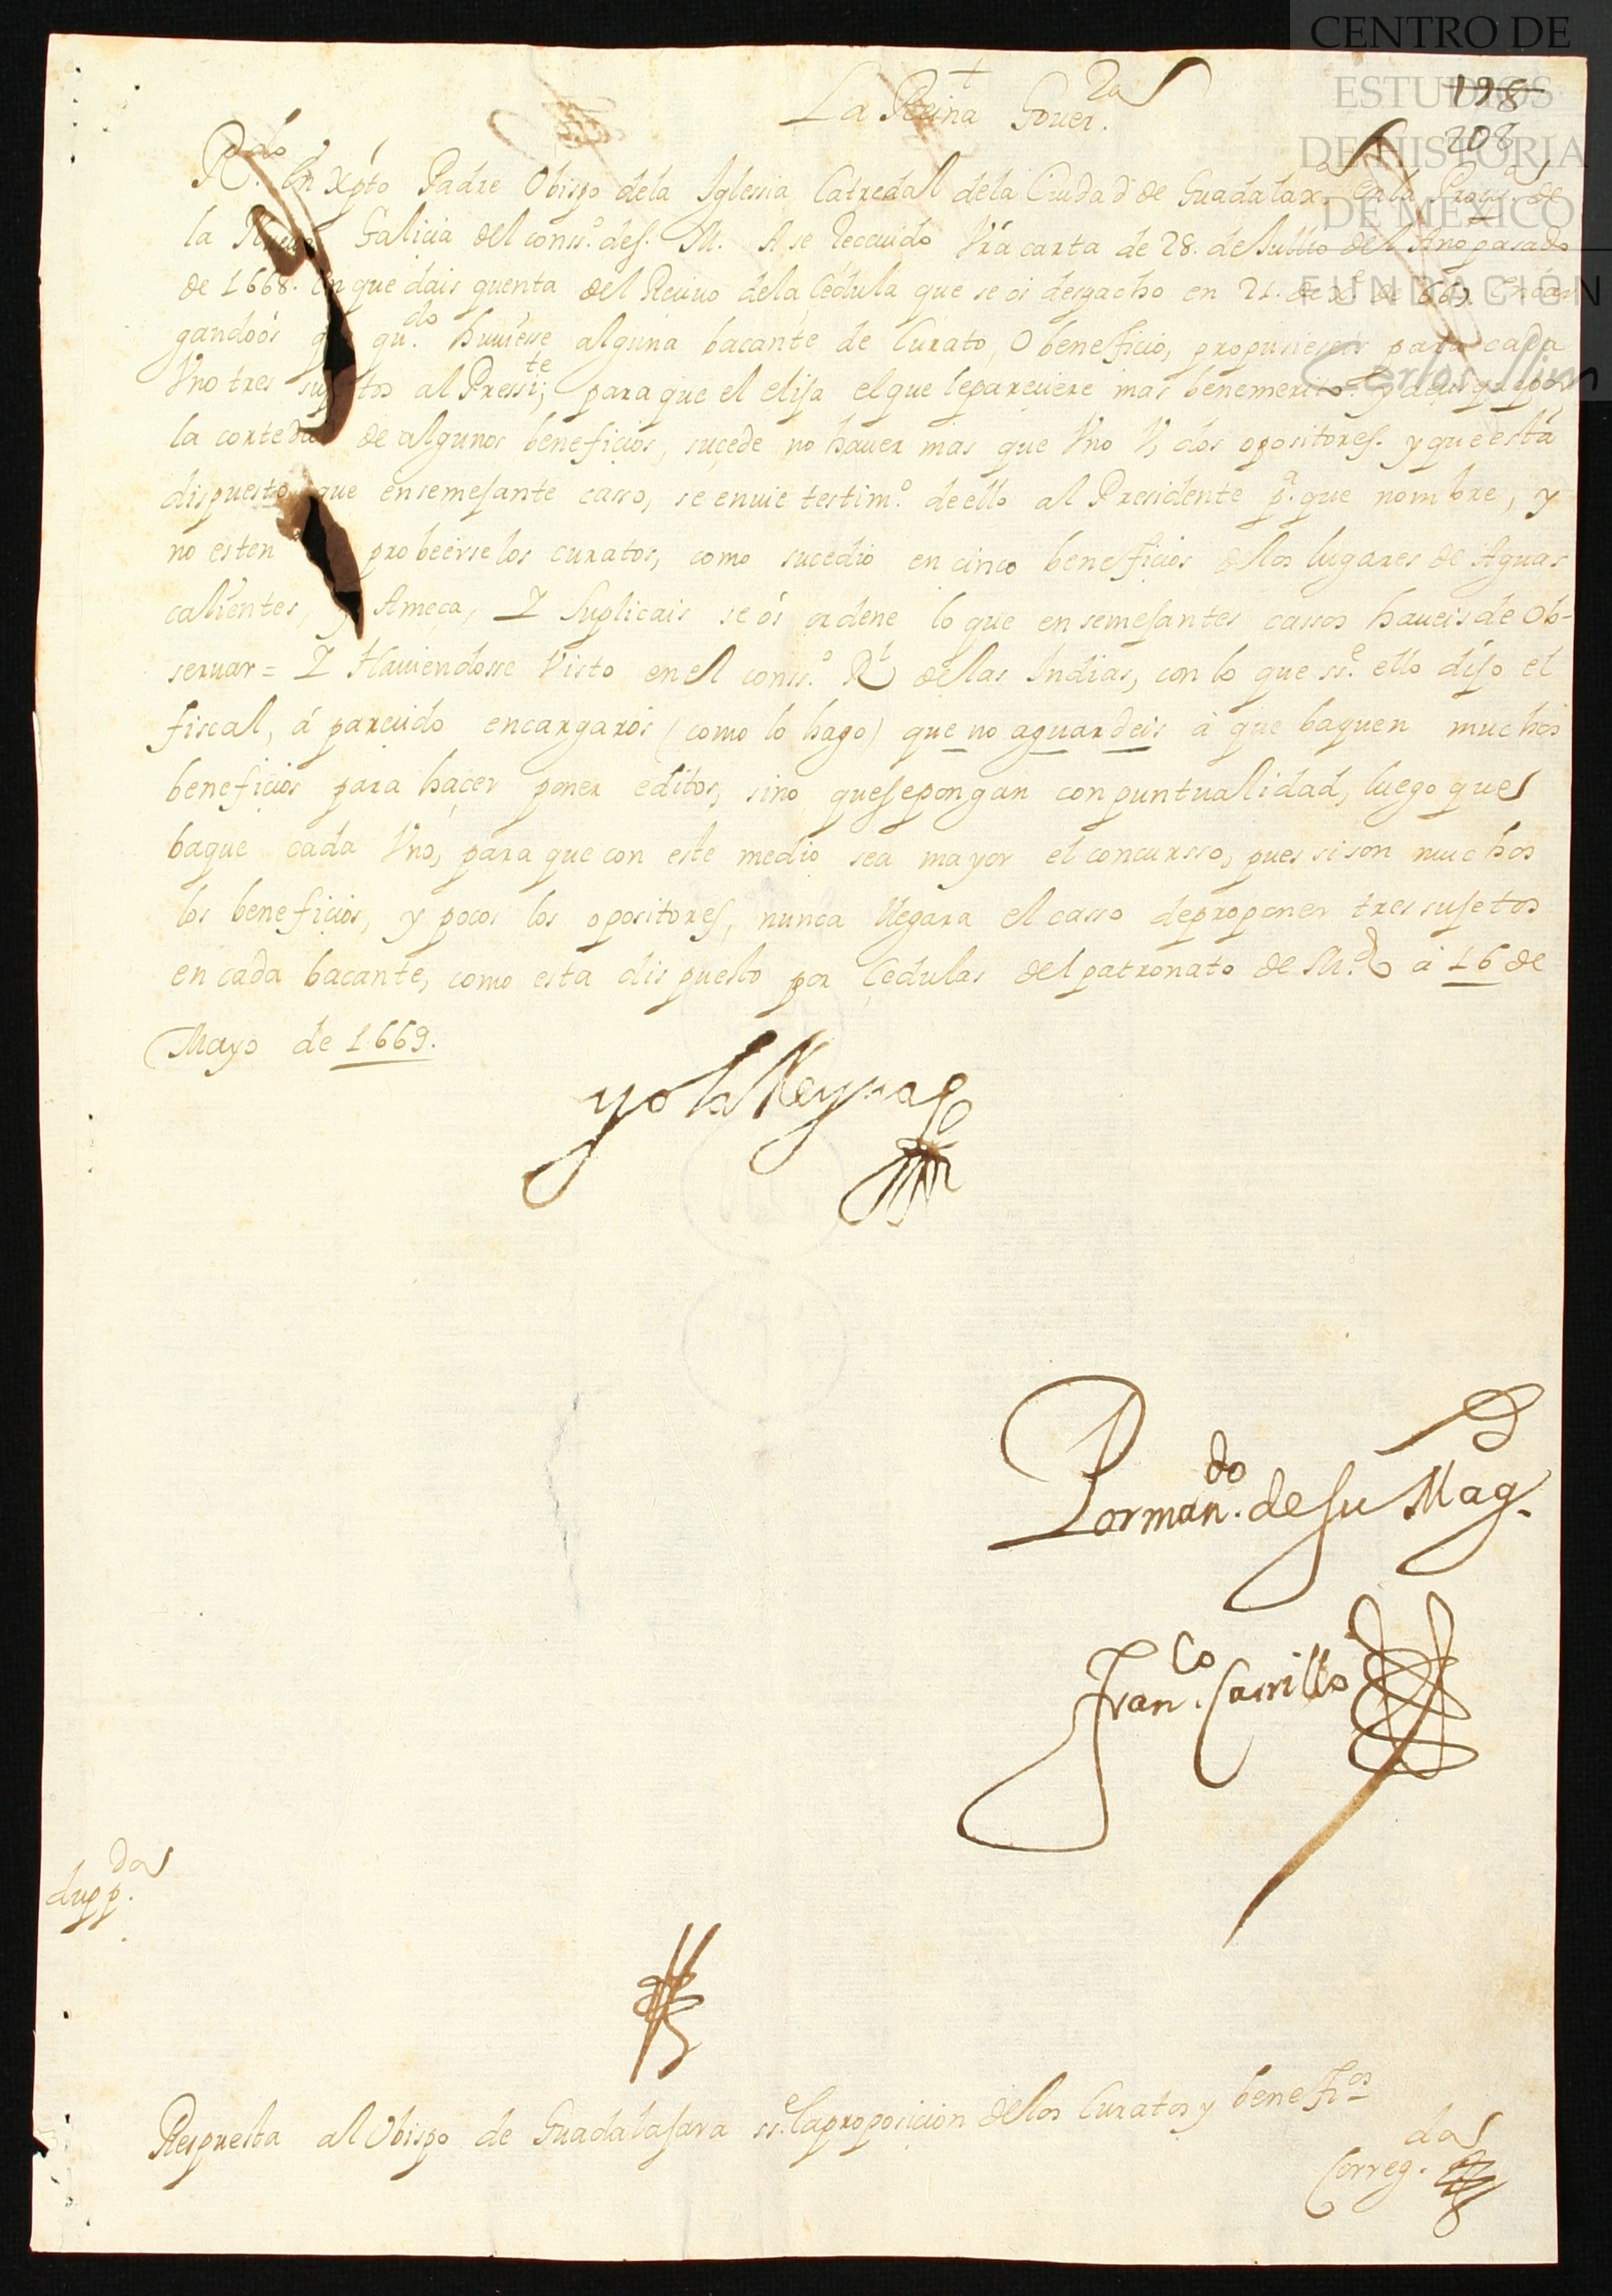 CENTRO DE
ESTUDIOS
DE HISTORIA
DE MEXICO
FUNDACIÓN
Carlos Slim
198
208
La Reina Gouer.ra
R.do en Xpto Padre Obispo dela Iglessia Catredal dela Ciudad de Guadalax.ra en la Prouy.a de
la Nueua Galicia del conss.o des. M. A se Receuido Vra carta de 28. de Jullio del Año pasado
de 1668. en que dais quenta del Reciuo dela Cedula que se os despacho en 21. de de Encar
gandoôs q qu.do huuiesse alguna bacante de Curato, O beneficio, propusieseis para cada
Vno tres sugetos al Pressi.te; para que el elija el que le pareciere mas benemerito y que por
la cortedad de algunos beneficios, suçede no hauer mas que Vno V, dos opositores. y que está
dispuesto que en semejante casso, se enuie testim.o de ello al Presidente p.a que nombre, y
no esten probeerse los curatos, como sucedio en cinco beneficios delos lugares de Aguas
calientes, y Ameca, I Suplicais se ôs ordene lo que en semejantes cassos haueis de Ob-
seruar = I Hauiendosse Visto en el conss.o R.l delas Indias, con lo que ss.e ello dijo el
fiscal, á parecido encargaros (como lo hago) que no aguardeis à que baquen muchos
beneficios para haçer poner editos, sino que se pongan con puntualidad, luego que
baque cada Vno, para que con este medio sea mayor el concursso, pues si son muchos
los beneficios, y pocos los opositores, nunca llegara el casso de proponer tres sujetos
en cada bacante, como esta dispuesto por Çedulas del patronato de M.d à 16 de
Mayo de 1669.
yo la Reyna
Por man.do de su Mag.d
Fran.co Carrillo
dupp.da
Respuesta al Obispo de Guadalajara ss.e la proposiçion delos Curatos y benefi.os
Correg.da